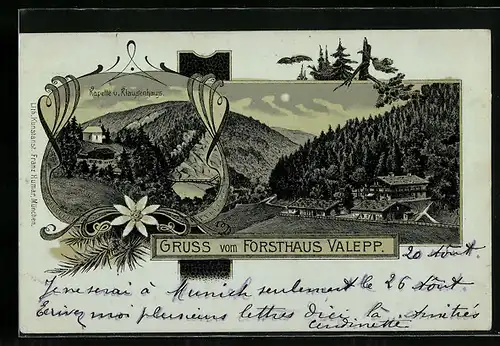 Kapelle u. Klausenhaus.
Lith. Kunstanst. Franz Humar, München.
GRUSS vom FORSTHAUS VALEPP.
20 Août.
Je ne serai à Munich seulement le 26 Août
Ecrivez moi plusieurs lettres d'ici là Amitiés